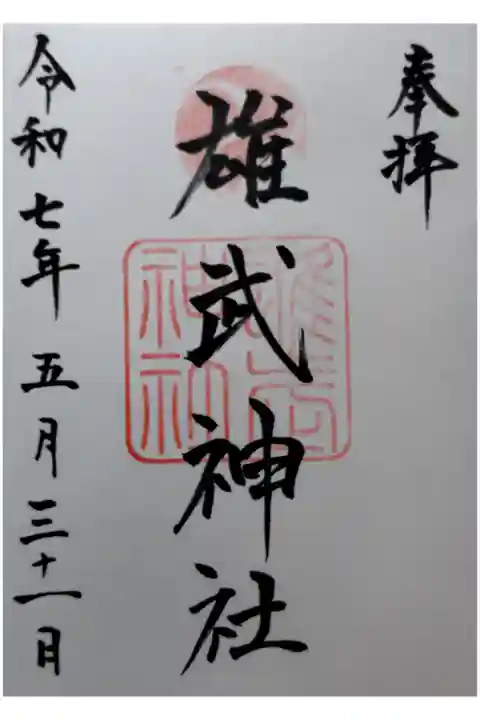 奉拝
雄武神社
雄武
神社
令和七年五月三十一日